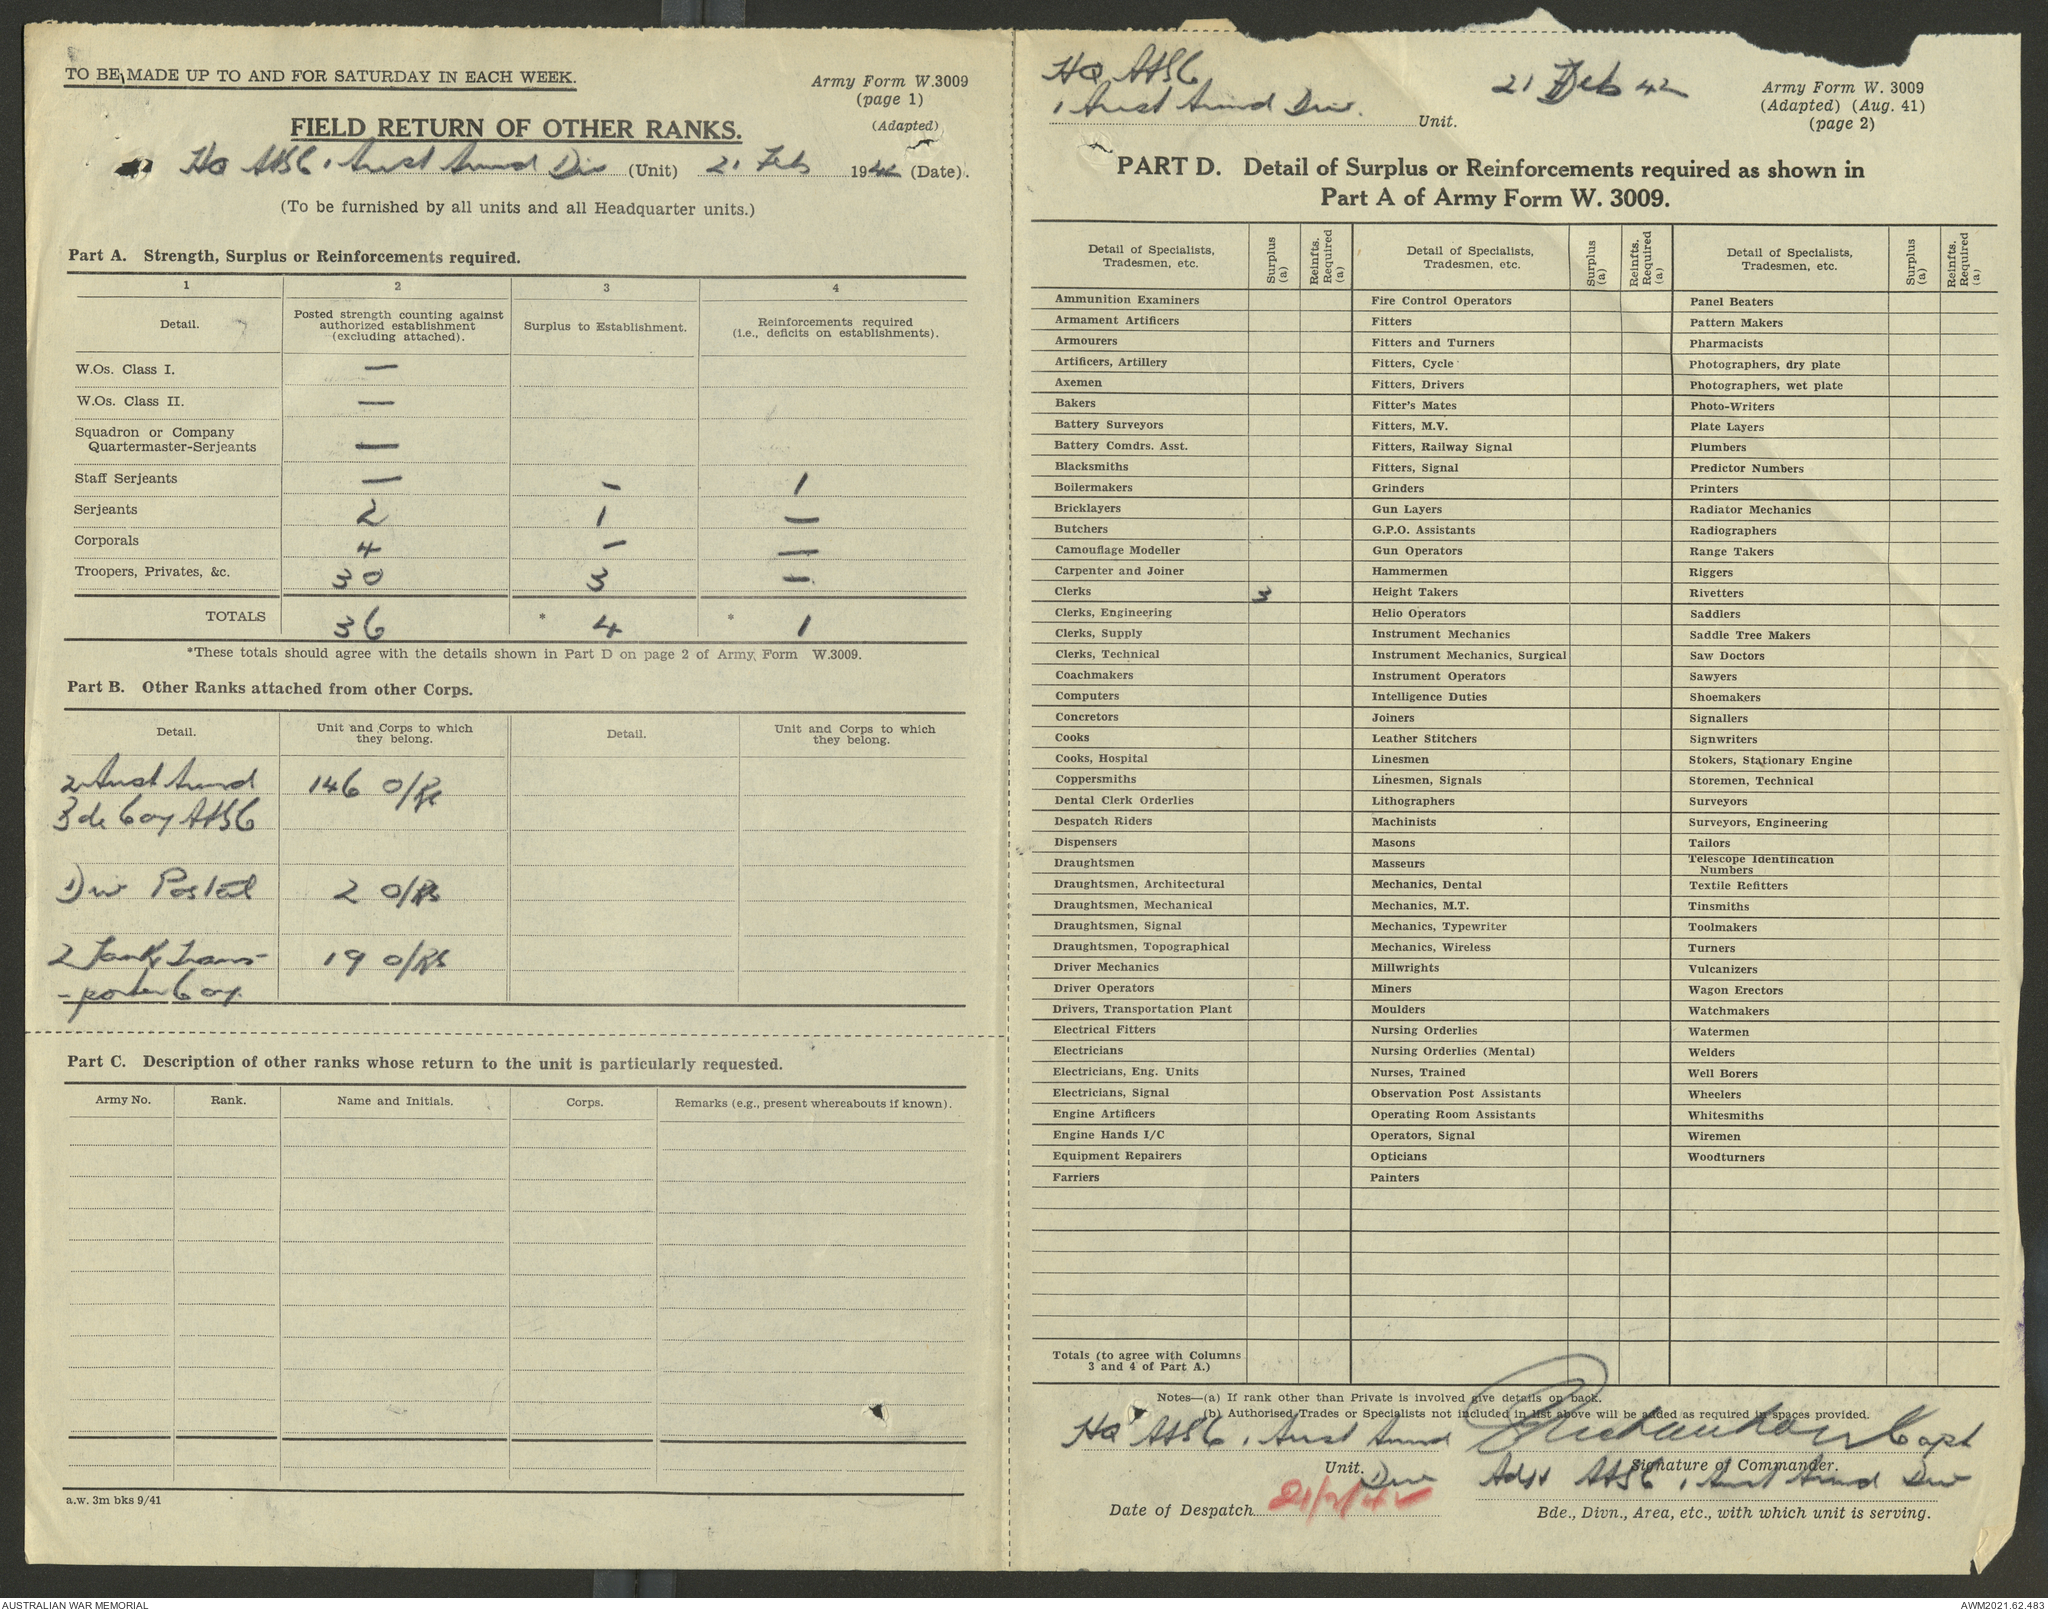 TO BE MADE UP TO AND FOR SATURDAY IN EACH WEEK.
Army Form W.3009
(page 1)
(Adapted)
FIELD RETURN OF OTHER RANKS.
HQ AASC 1 Aust Armd Div (Unit) 21 Feb 1942 (Date).
(To be furnished by all units and all Headquarter units.)
Part A. Strength, Surplus or Reinforcements required.
1 2 3 4
Detail. Posted strength counting against authorized establishment (excluding attached). Surplus to Establishment. Reinforcements required (i.e., deficits on establishments).
W.Os. Class I. —
W.Os. Class II. —
Squadron or Company
Quartermaster-Serjeants —
Staff Serjeants — — 1
Serjeants 2 1 —
Corporals 4 — —
Troopers, Privates, &c. 30 3 —
TOTALS 36 * 4 * 1
*These totals should agree with the details shown in Part D on page 2 of Army Form W.3009.
Part B. Other Ranks attached from other Corps.
Detail. Unit and Corps to which they belong. Detail. Unit and Corps to which they belong.
2 Aust Armd 146 O/Rs
Bde Coy AASC
Div Postal 2 O/Rs
2 Tank Trans- 19 O/Rs
-porter Coy.
Part C. Description of other ranks whose return to the unit is particularly requested.
Army No. Rank. Name and Initials. Corps. Remarks (e.g., present whereabouts if known).
a.w. 3m bks 9/41
HQ AASC
1 Aust Armd Div. Unit.
21 Feb 42
Army Form W. 3009
(Adapted) (Aug. 41)
(page 2)
PART D. Detail of Surplus or Reinforcements required as shown in
Part A of Army Form W. 3009.
Detail of Specialists, Tradesmen, etc. Surplus (a) Reinfts. Required (a) Detail of Specialists, Tradesmen, etc. Surplus (a) Reinfts. Required (a) Detail of Specialists, Tradesmen, etc. Surplus (a) Reinfts. Required (a)
Ammunition Examiners Fire Control Operators Panel Beaters
Armament Artificers Fitters Pattern Makers
Armourers Fitters and Turners Pharmacists
Artificers, Artillery Fitters, Cycle Photographers, dry plate
Axemen Fitters, Drivers Photographers, wet plate
Bakers Fitter's Mates Photo-Writers
Battery Surveyors Fitters, M.V. Plate Layers
Battery Comdrs. Asst. Fitters, Railway Signal Plumbers
Blacksmiths Fitters, Signal Predictor Numbers
Boilermakers Grinders Printers
Bricklayers Gun Layers Radiator Mechanics
Butchers G.P.O. Assistants Radiographers
Camouflage Modeller Gun Operators Range Takers
Carpenter and Joiner Hammermen Riggers
Clerks 3 Height Takers Rivetters
Clerks, Engineering Helio Operators Saddlers
Clerks, Supply Instrument Mechanics Saddle Tree Makers
Clerks, Technical Instrument Mechanics, Surgical Saw Doctors
Coachmakers Instrument Operators Sawyers
Computers Intelligence Duties Shoemakers
Concretors Joiners Signallers
Cooks Leather Stitchers Signwriters
Cooks, Hospital Linesmen Stokers, Stationary Engine
Coppersmiths Linesmen, Signals Storemen, Technical
Dental Clerk Orderlies Lithographers Surveyors
Despatch Riders Machinists Surveyors, Engineering
Dispensers Masons Tailors
Draughtsmen Masseurs Telescope Identification Numbers
Draughtsmen, Architectural Mechanics, Dental Textile Refitters
Draughtsmen, Mechanical Mechanics, M.T. Tinsmiths
Draughtsmen, Signal Mechanics, Typewriter Toolmakers
Draughtsmen, Topographical Mechanics, Wireless Turners
Driver Mechanics Millwrights Vulcanizers
Driver Operators Miners Wagon Erectors
Drivers, Transportation Plant Moulders Watchmakers
Electrical Fitters Nursing Orderlies Watermen
Electricians Nursing Orderlies (Mental) Welders
Electricians, Eng. Units Nurses, Trained Well Borers
Electricians, Signal Observation Post Assistants Wheelers
Engine Artificers Operating Room Assistants Whitesmiths
Engine Hands I/C Operators, Signal Wiremen
Equipment Repairers Opticians Woodturners
Farriers Painters
Totals (to agree with Columns
3 and 4 of Part A.)
Notes—(a) If rank other than Private is involved give details on back.
(b) Authorised Trades or Specialists not included in list above will be added as required in spaces provided.
HQ AASC 1 Aust Armd Capt
Unit. Div Signature of Commander.
Adjt AASC 1 Aust Armd Div
Date of Despatch 21/2/42
Bde., Divn., Area, etc., with which unit is serving.
AUSTRALIAN WAR MEMORIAL
AWM2021.62.483